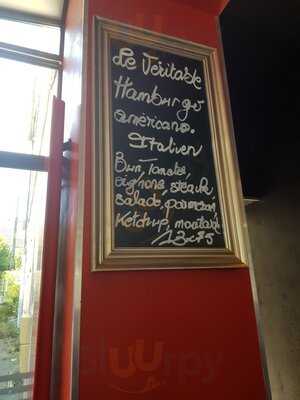 Le Véritable
Hamburger
américano.
Italien
Bun, tomates,
oignons, steak
salade, parmesan
Ketchup, moutarde
13€75
Sluurpy